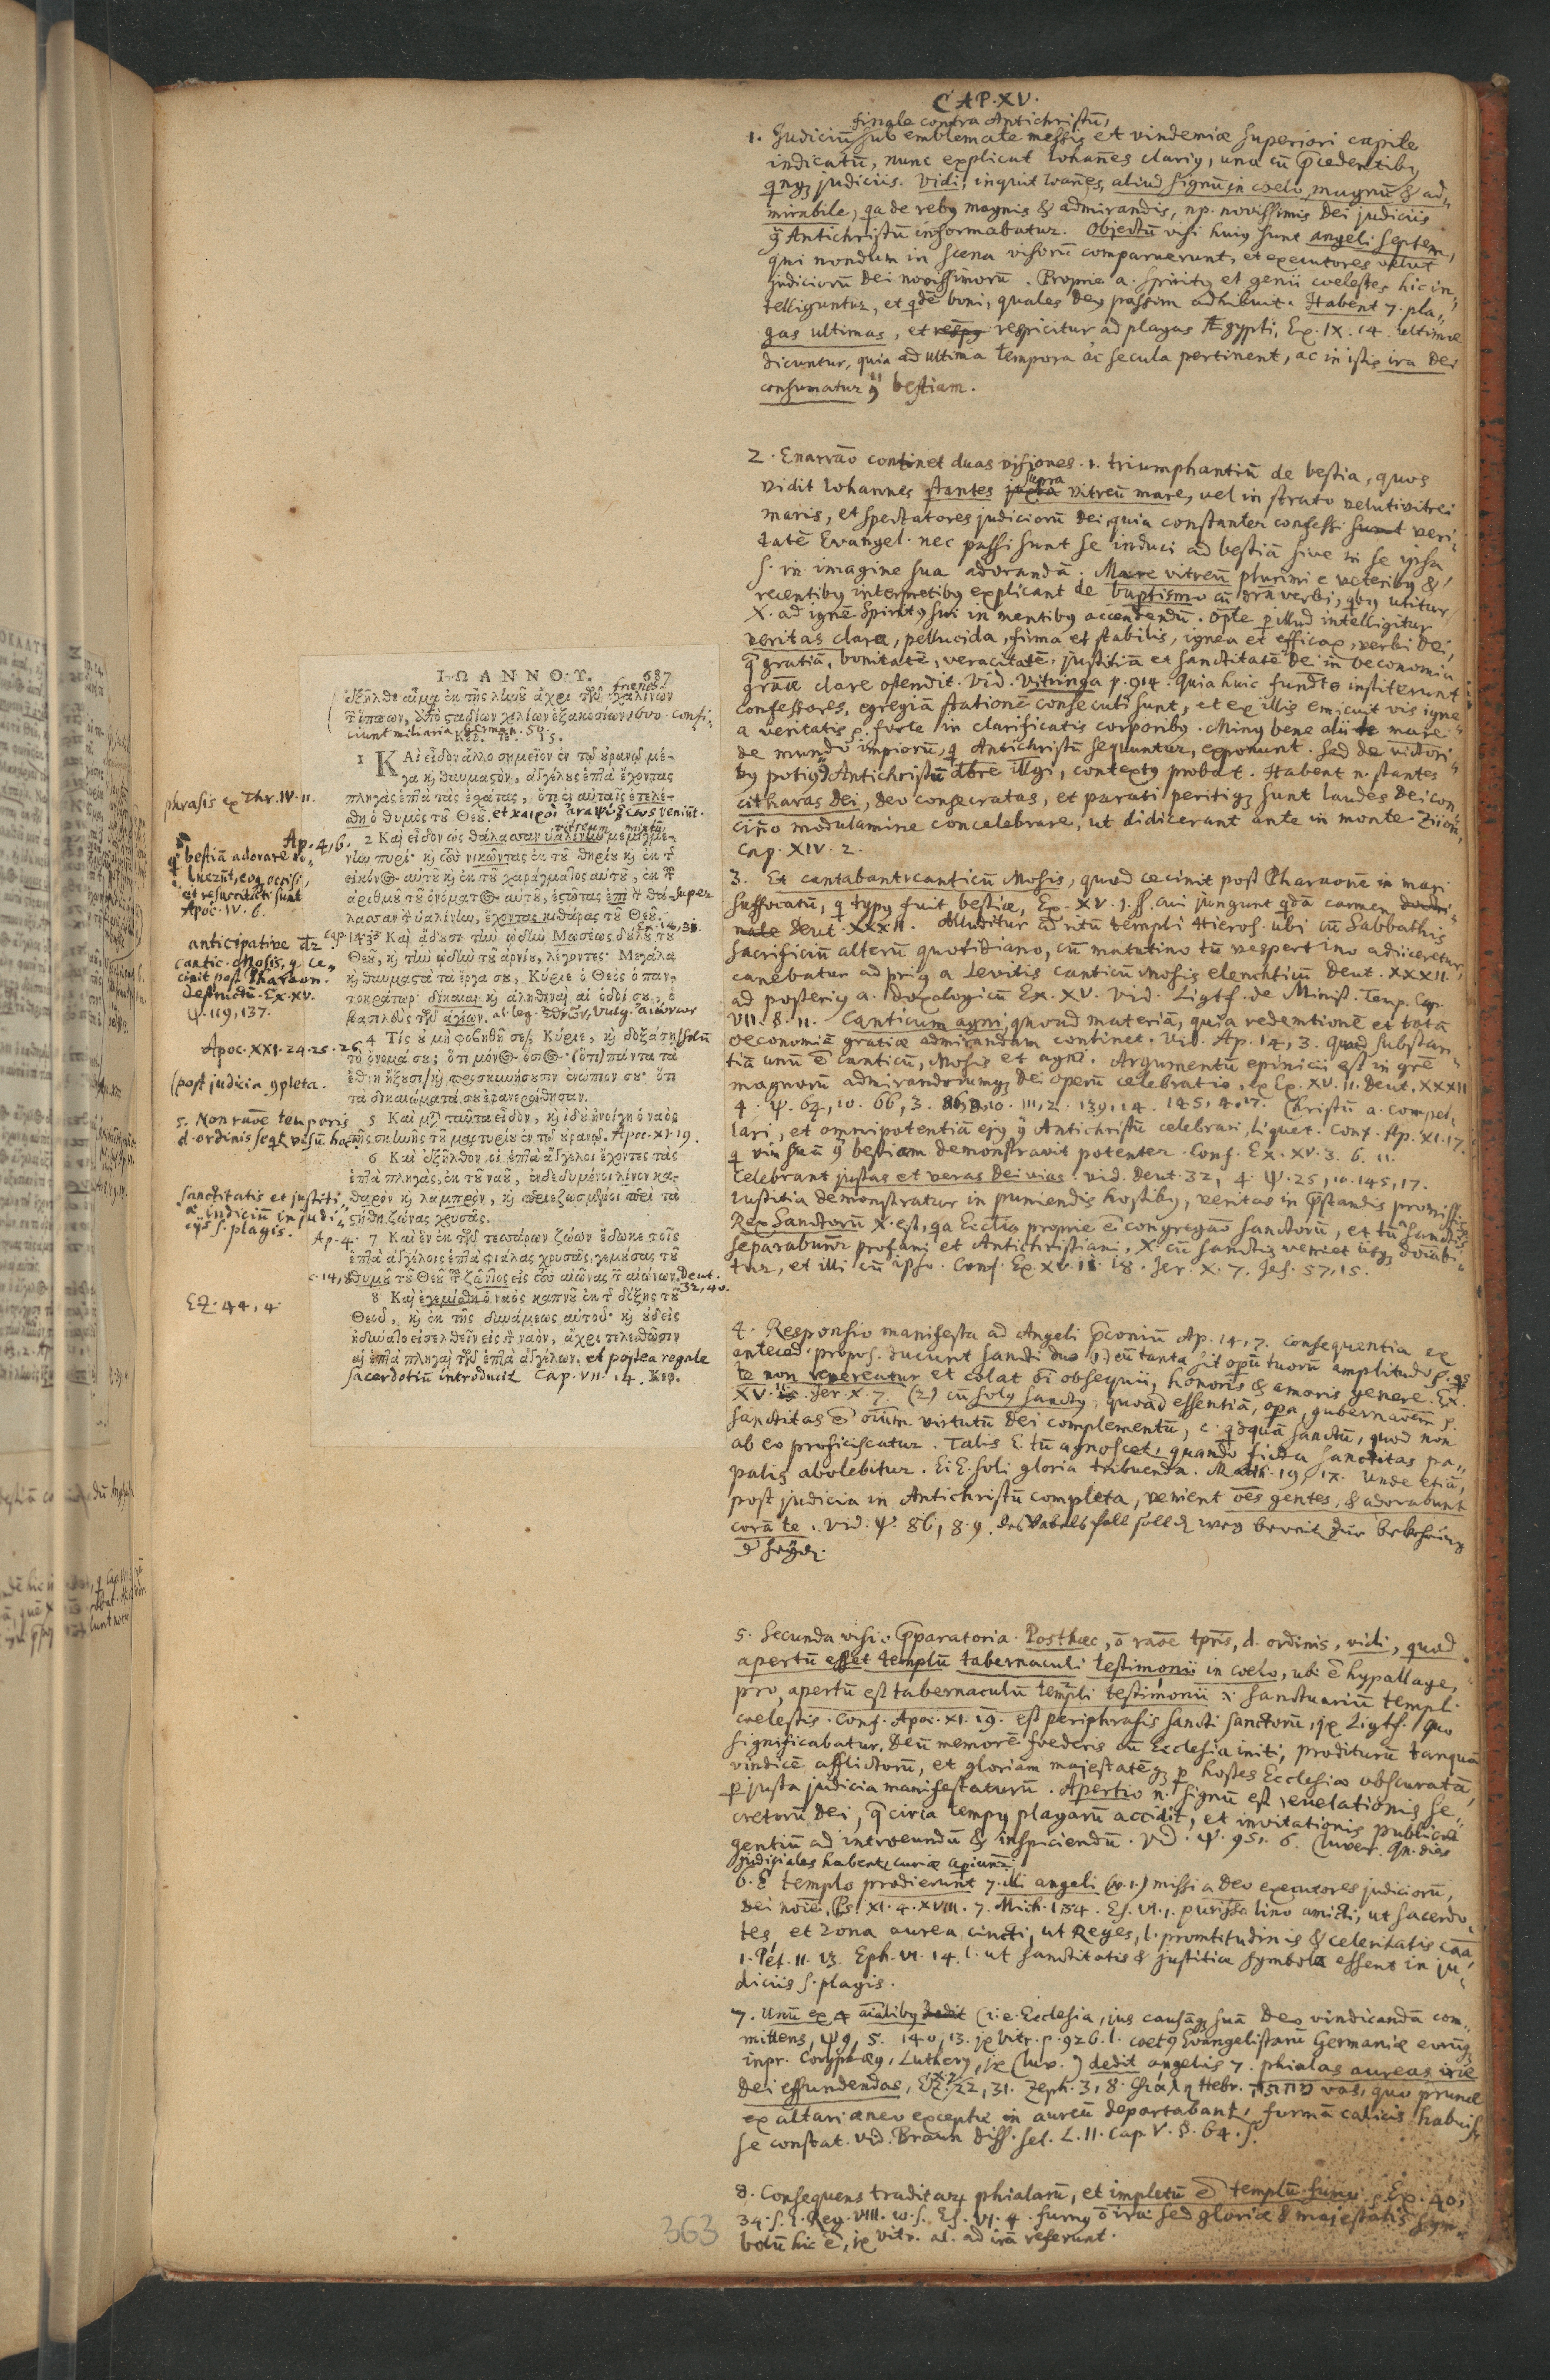 CAP. XV.
finale contra Antichristū,
1. Judiciū sub emblemate messis et vindemiæ superiori capite
indicatū, nunc explicat Iohañes clariꝰ, una cū p̄cedentibꝰ
judiciis. Vidi, inquit Ioañes, aliud signū in coelo, magnū & ad„
mirabile, qa de rebꝰ magnis & admirandis, np. novissimis Dei judiciis
Antichristū informabatur. Objectū visi huiꝰ sunt angeli septem,
qui nondum in scena visorū comparuerunt, et executores velut
judiciorū Dei novissimorū. Proprie a. spiritꝰ et genii coelestes hic in„
telliguntur, et qdē boni, quales Deꝰ passim adhibuit. Habent 7. pla„
gas ultimas, et respicitur ad plagas Ægypti, Ex. IX. 14. ultimæ
dicuntur, quia ad ultima tempora ac secula pertinent, ac in istis ira Dei
consumatur bestiam.
2. Enarrāo continet duas visiones. 1. triumphantiū de bestia, quos
vidit Iohannes stantes supra vitreū mare, vel in strato veluti vitrei
maris, et spectatores judiciorū Dei, quia constanter confessi sunt veri„
tatē Evangel. nec passi sunt se induci ad bestiā sive in se ipsa
s. in imagine sua adorandā. Mare vitreū plurimi e veteribꝰ &
recentibꝰ interpretibꝰ explicant de baptismo cū verbi, qbꝰ utitur
X. ad ignē Spiritꝰ sui in mentibꝰ accendendū. opte p illud intelligitur
veritas clara, pellucida, firma et stabilis, ignea et efficax, verbi Dei,
gratiā, bonitatē, veracitatē, justitiā et sanctitatē Dei in oeconomia
grāæ clare ostendit. Vid. Vitringa p. 914. quia huic fundto institerunt
confessores, egregiā stationē consecuti sunt, et ex illis emicuit vis igne„
a veritatis forte in clarificatis corporibꝰ. Minꝰ bene alii mare
de mundo impiorū, q Antichristū sequuntur, exponunt. Sed de victori„
bꝰ potiꝰ Antichristū illgi, contextꝰ probat. Habent n. stantes
citharas Dei, Deo consecratas, et parati peritiqꝫ sunt laudes Dei con
cinno modulamine concelebrare, ut didicerant ante in monte Ziion,
Cap. XIV. 2.
3. Et cantabant canticū Mosis, quod cecinit post Pharaonē in mari
suffocatū, q typꝰ fuit bestiæ, Ex. XV. 1. ss. cui jungunt qdā carmen
Deut. XXXII. Alluditur ad ritū templi Hieros. ubi cū Sabbathis
sacrificiū alterū quotidiano, cū matutino tū vespertino adiiceretur,
canebatur ad priꝰ a Levitis canticū Mosis elenchticū Deut. XXXII.
ad posteriꝰ a. doxologicū Ex. XV. Vid. Ligtf. de Minist. Temp. Cap.
VII. §. II. Canticum agni, quoad materiā, quia redemtionē et totā
oeconomiā gratiæ admirandam continet. Vid. Ap. 14, 3. quoad substan„
tiā unū ē canticū, Mosis et agni. Argumentū epinicii est in gre
magnorū admirandorumqꝫ Dei operū celebratio, ex Ex. XV. 11. Deut. XXXII
4. Ψ. 64, 10. 66, 3. 86, 8.10. 111, 2. 139, 14. 145, 4. 17. Christū a. compel„
lari, et omnipotentiā ejꝰ Antichristū celebrari, liquet. Conf. Ap. XI. 17.
q vim suā bestiam demonstravit potenter. Conf. Ex. XV. 3. 6. 11.
Celebrant justas et veras Dei vias. vid. Deut. 32, 4. Ψ. 25, 10. 145, 17.
Iustitia demonstratur in puniendis hostibꝰ, veritas in p̄standis promiss.
Rex Sanctorū X. est, qa Ecctia proprie ē congregāo sanctorū, et tū
separabunr profani et Antichristiani, X. cū sanctis veniet
tur, et illi cū ipso. Conf. Ex. XV. 18. Jer. X. 7. Jes. 57, 15.
4. Responsio manifesta ad Angeli p̄conium Ap. 14, 7. consequentia ex
anteced. propos. ducunt sancti duo (1.) cū tanta sit operū tuorū amplitudo
te non vereatur et colat oī obsequii, honoris & amoris genere. Ex.
XV. 11. Jer. X. 7. (2) cū solꝰ sanctꝰ, quoad essentiā, opera, gubernaōem
sanctitas ē oīum virtutū Dei complementū, qdquā sanctū, quod non
ab eo proficiscatur. Talis tū agnoscet, quando ficta sanctitas pa„
palis abolebitur. Ei soli gloria tribuenda. Matth. 19, 17. Unde etiā,
post judicia in Antichristū completa, venient oēs gentes, & adorabunt
corā te. Vid. Ψ. 86, 8. 9. des Babels fall soll
5. Secunda visio p̄paratoria. Posthæc, raōe tpris, ordinis, vidi, quod
apertū esset templū tabernaculi testimonii in coelo, ubi ē hypallage,
pro, apertū est tabernaculū templi testimonii sanctuariū templi
coelestis. Conf. Apoc. XI. 19. est periphrasis sancti sanctorū, Ligtf. quo
significabatur, Deū memorē foederis cū Ecclesia initi, proditurū tanquā
vindicē afflictorū, et gloriam majestatēqꝫ p hostes Ecclesiæ obscuratā,
p justa judicia manifestaturū. Apertio n. signū est revelationis se„
cretorū Dei, circa tempꝰ plagarū accidit, et invitationis publicæ
gentiū ad introeundū & inspiciendū. Vid. Ψ. 95. 6. dies
judiciales habent, curiæ
6. E templo prodierunt 7. illi angeli (v. 1.) missi a Deo executores judiciorū,
Dei noīe, Ps. XI. 4. XVIII. 7. Mich. I. Es. VI. 1. lino amicti, ut sacerdo„
tes, et zona aurea cincti, ut Reges, l. promtitudinis & celeritatis caā
1. Pet. II. Eph. VI. 14. l. ut sanctitatis & justitiæ symbola essent in ju„
diciis s. plagis.
7. Unū ex 4 aīalibꝰ (i. e. Ecclesia, jus causāqꝫ suā Deo vindicandā com„
mittens, Ψ 9, 5. 140, 13. Vitr. p. 926. l. coetꝰ Evangelistarū Germaniæ
inpr. Coryphæꝰ, Lutherꝰ, dedit angelis 7. phialas aureas iræ
Dei effundendas, Ez. 22, 31. Zeph. 3, 8. φιάλη Hebr. מחתה vas, quo prunæ
ex altari æneo exceptæ in aureū deportabant, formā calicis habuis„
se constat. vid. Braun diss. sel. L. II. Cap. V. §. 64. s.
8. Consequens traditarū phialarū, et impletū ē templū fumo. Ex. 40,
34. s. 1. Reg. VIII. 10. s. Es. VI. 4. fumꝰ iræ sed gloriæ & majestatis sym„
bolū hic ē, Vitr. al. ad irā referunt.
ΙΩΑΝΝΟΥ. 687
ἐξῆλθεν αἷμα ἐκ τῆς ληνοῦ ἄχρι τῶν χαλινῶν
τῶν ἵππων, ἀπὸ σταδίων χιλίων ἑξακοσίων. 1600. confi„
ciunt miliaria German. 50.
Κεφ. ιε. 15.
1 ΚΑὶ εἶδον ἄλλο σημεῖον ἐν τῷ οὐρανῷ μέ-
γα καὶ θαυμαστὸν, ἀγγέλους ἑπτὰ ἔχοντας
πληγὰς ἑπτὰ τὰς ἐσχάτας, ὅτι ἐν αὐταῖς ἐτελέ-
σθη ὁ θυμὸς τοῦ Θεοῦ. et καιροὶ ἀναψύξεως veniūt.
vitreum mixtū
2 Καὶ εἶδον ὡς θάλασσαν ὑαλίνην μεμιγμέ-
νην πυρί· καὶ τοὺς νικῶντας ἐκ τοῦ θηρίου καὶ ἐκ τῆς
εἰκόνος αὐτοῦ καὶ ἐκ τοῦ χαράγματος αὐτοῦ, ἐκ τοῦ
ἀριθμοῦ τοῦ ὀνόματος αὐτοῦ, ἑστῶτας ἐπὶ τὴν θά- super
λασσαν τὴν ὑαλίνην, ἔχοντας κιθάρας τοῦ Θεοῦ.
3 Καὶ ᾄδουσι τὴν ᾠδὴν Μωσέως δούλου τοῦ
Θεοῦ, καὶ τὴν ᾠδὴν τοῦ ἀρνίου, λέγοντες· Μεγάλα
καὶ θαυμαστὰ τὰ ἔργα σου, Κύριε ὁ Θεὸς ὁ παν-
τοκράτωρ· δίκαιαι καὶ ἀληθιναὶ αἱ ὁδοί σου, ὁ
βασιλεὺς τῶν ἁγίων. al. leg. ἐθνῶν, vulg. αἰώνων
4 Τίς οὐ μὴ φοβηθῇ σε, Κύριε, καὶ δοξάσῃ solū
τὸ ὄνομά σου; ὅτι μόνος ὅσιος· (ὅτι) πάντα τὰ
ἔθνη ἥξουσι καὶ προσκυνήσουσιν ἐνώπιόν σου· ὅτι
τὰ δικαιώματά σου ἐφανερώθησαν.
5 Καὶ μετὰ ταῦτα εἶδον, καὶ ἰδοὺ ἠνοίγη ὁ ναὸς
τῆς σκηνῆς τοῦ μαρτυρίου ἐν τῷ οὐρανῷ. Apoc. XI. 19.
6 Καὶ ἐξῆλθον οἱ ἑπτὰ ἄγγελοι ἔχοντες τὰς
ἑπτὰ πληγὰς, ἐκ τοῦ ναοῦ, ἐνδεδυμένοι λίνον κα-
θαρὸν καὶ λαμπρὸν, καὶ περιεζωσμένοι περὶ τὰ
στήθη ζώνας χρυσᾶς.
7 Καὶ ἓν ἐκ τῶν τεσσάρων ζώων ἔδωκε τοῖς
ἑπτὰ ἀγγέλοις ἑπτὰ φιάλας χρυσᾶς, γεμούσας τοῦ
θυμοῦ τοῦ Θεοῦ τοῦ ζῶντος εἰς τοὺς αἰῶνας τῶν αἰώνων. Deut. 32, 40.
8 Καὶ ἐγεμίσθη ὁ ναὸς καπνοῦ ἐκ τῆς δόξης τοῦ
Θεοῦ, καὶ ἐκ τῆς δυνάμεως αὐτοῦ· καὶ οὐδεὶς
ἠδύνατο εἰσελθεῖν εἰς τὸν ναὸν, ἄχρι τελεσθῶσιν
αἱ ἑπτὰ πληγαὶ τῶν ἑπτὰ ἀγγέλων. et postea regale
sacerdotiū introducit Cap. VII. 14. Κεφ.
phrasis ex Thr. IV. 11.
Ap. 4, 6.
bestiā adorare no„
luerūt, eoqꝫ occisi,
et resuscitati sunt
Apoc. IV. 6.
anticipative
cantic. Mosis, q ce„
cinit post Pharaon.
destructū. Ex. XV.
Ψ. 119, 137.
Apoc. XXI. 24. 25. 26
(post judicia completa.
5. Non raōe temporis
d. ordinis seqt visū hoc
sanctitatis et justiti„
æ indiciū in judi„
ciis s. plagis.
Ap. 4.
Ez. 44, 4.
363